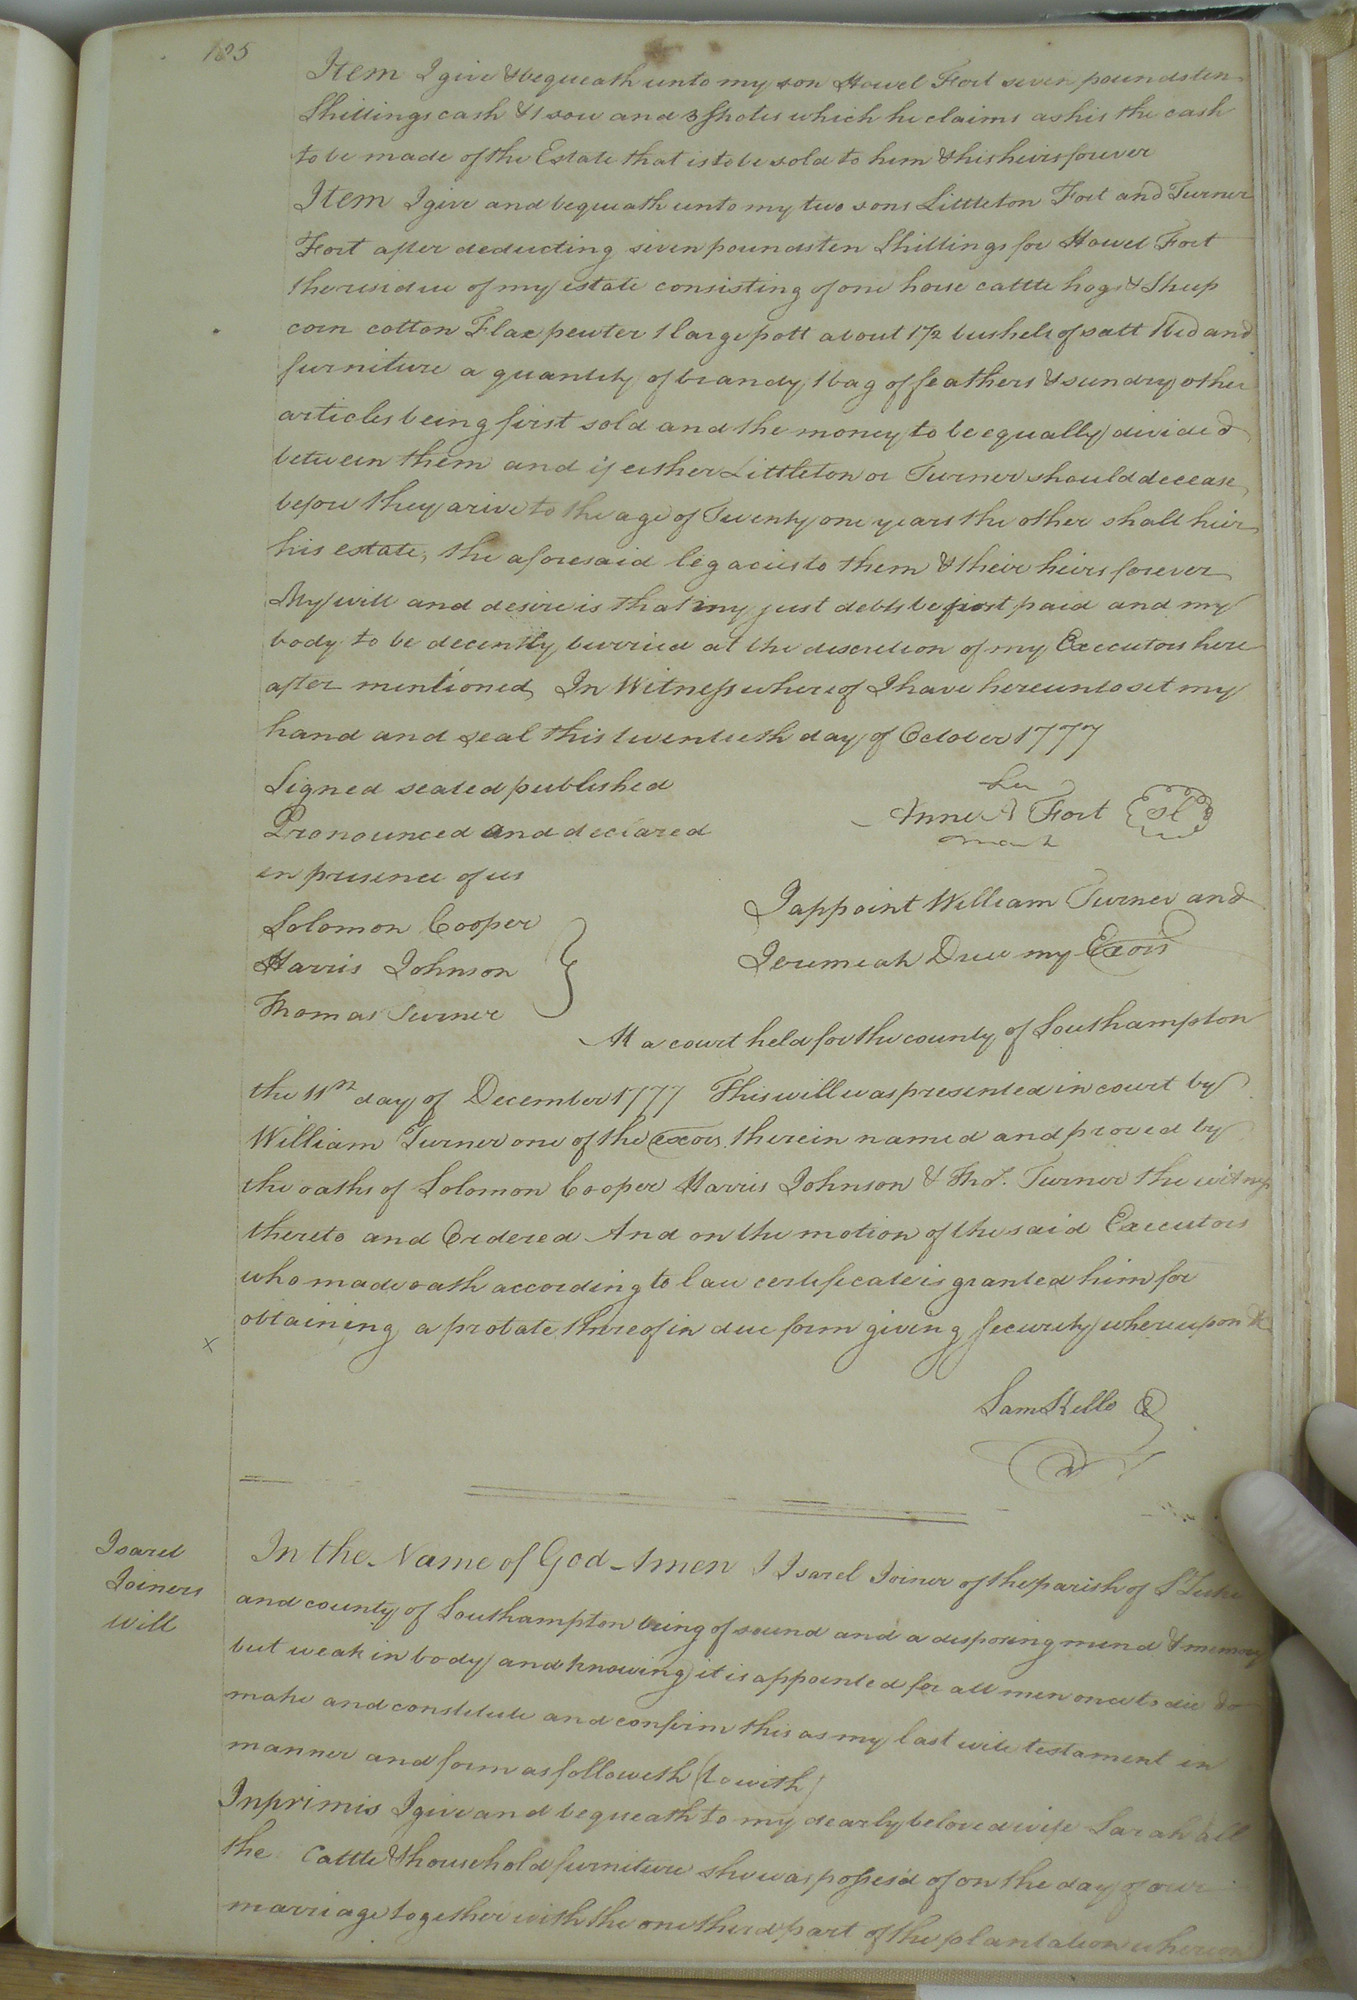 185
Item I give & bequeath unto my son Howel Fort seven pounds ten
Shillings cash & 1 sow and 3 Shotes which he claims as his the cash
to be made of the Estate that is to be sold to him & his heirs forever
Item I give and bequeath unto my two sons Littleton Fort and Turner
Fort after deducting seven pounds ten Shillings for Howel Fort
the residue of my estate consisting of one horse cattle hogs & Sheep
corn cotton Flax pewter 1 large pott about 1 1/2 bushels of salt 1 bed and
furniture a quantity of brandy 1 bag of feathers & sundry other
articles being first sold and the money to be equally divided
between them and if either Littleton or Turner should decease
before they arive to the age of Twenty one years the other shall heir
his estate, the aforesaid legacies to them & their heirs forever
My will and desire is that my just debts be first paid and my
body to be decently burried at the discretion of my Executors here
after mentioned, In Witness whereof I have hereunto set my
hand and seal this twentieth day of October 1777
Signed sealed published
Pronounced and declared
in presence of us
her
Anne A Fort
mark
Sl
Solomon Cooper
Harris Johnson
Thomas Turner
I appoint William Turner and
Jeremiah Drew my Exors
At a court held for the county of Southampton
the 11th day of December 1777 This will was presented in court by
William Turner one of the exors. therein named and proved by
the oaths of Solomon Cooper Harris Johnson & Thos. Turner the witness
thereto and Ordered And on the motion of the said Executors
who made oath according to law certificate is granted him for
obtaining a probate thereof in due form giving Security whereupon &c
x
Sam Kello
Isarel
Joiners
Will
In the Name of God Amen I Isarel Joiner of the parish of St Luke
and county of Southampton being of sound and a disposing mind & memory
but weak in body and knowing it is appointed for all men once to die do
make and constitute and confirm this as my last will testament in
manner and form as followeth (to with)
Inprimis I give and bequeath to my dearly beloved wife Sarah all
the Cattle & household furniture she was posses'd of on the day of our
marriage together with the one third part of the plantation whereon